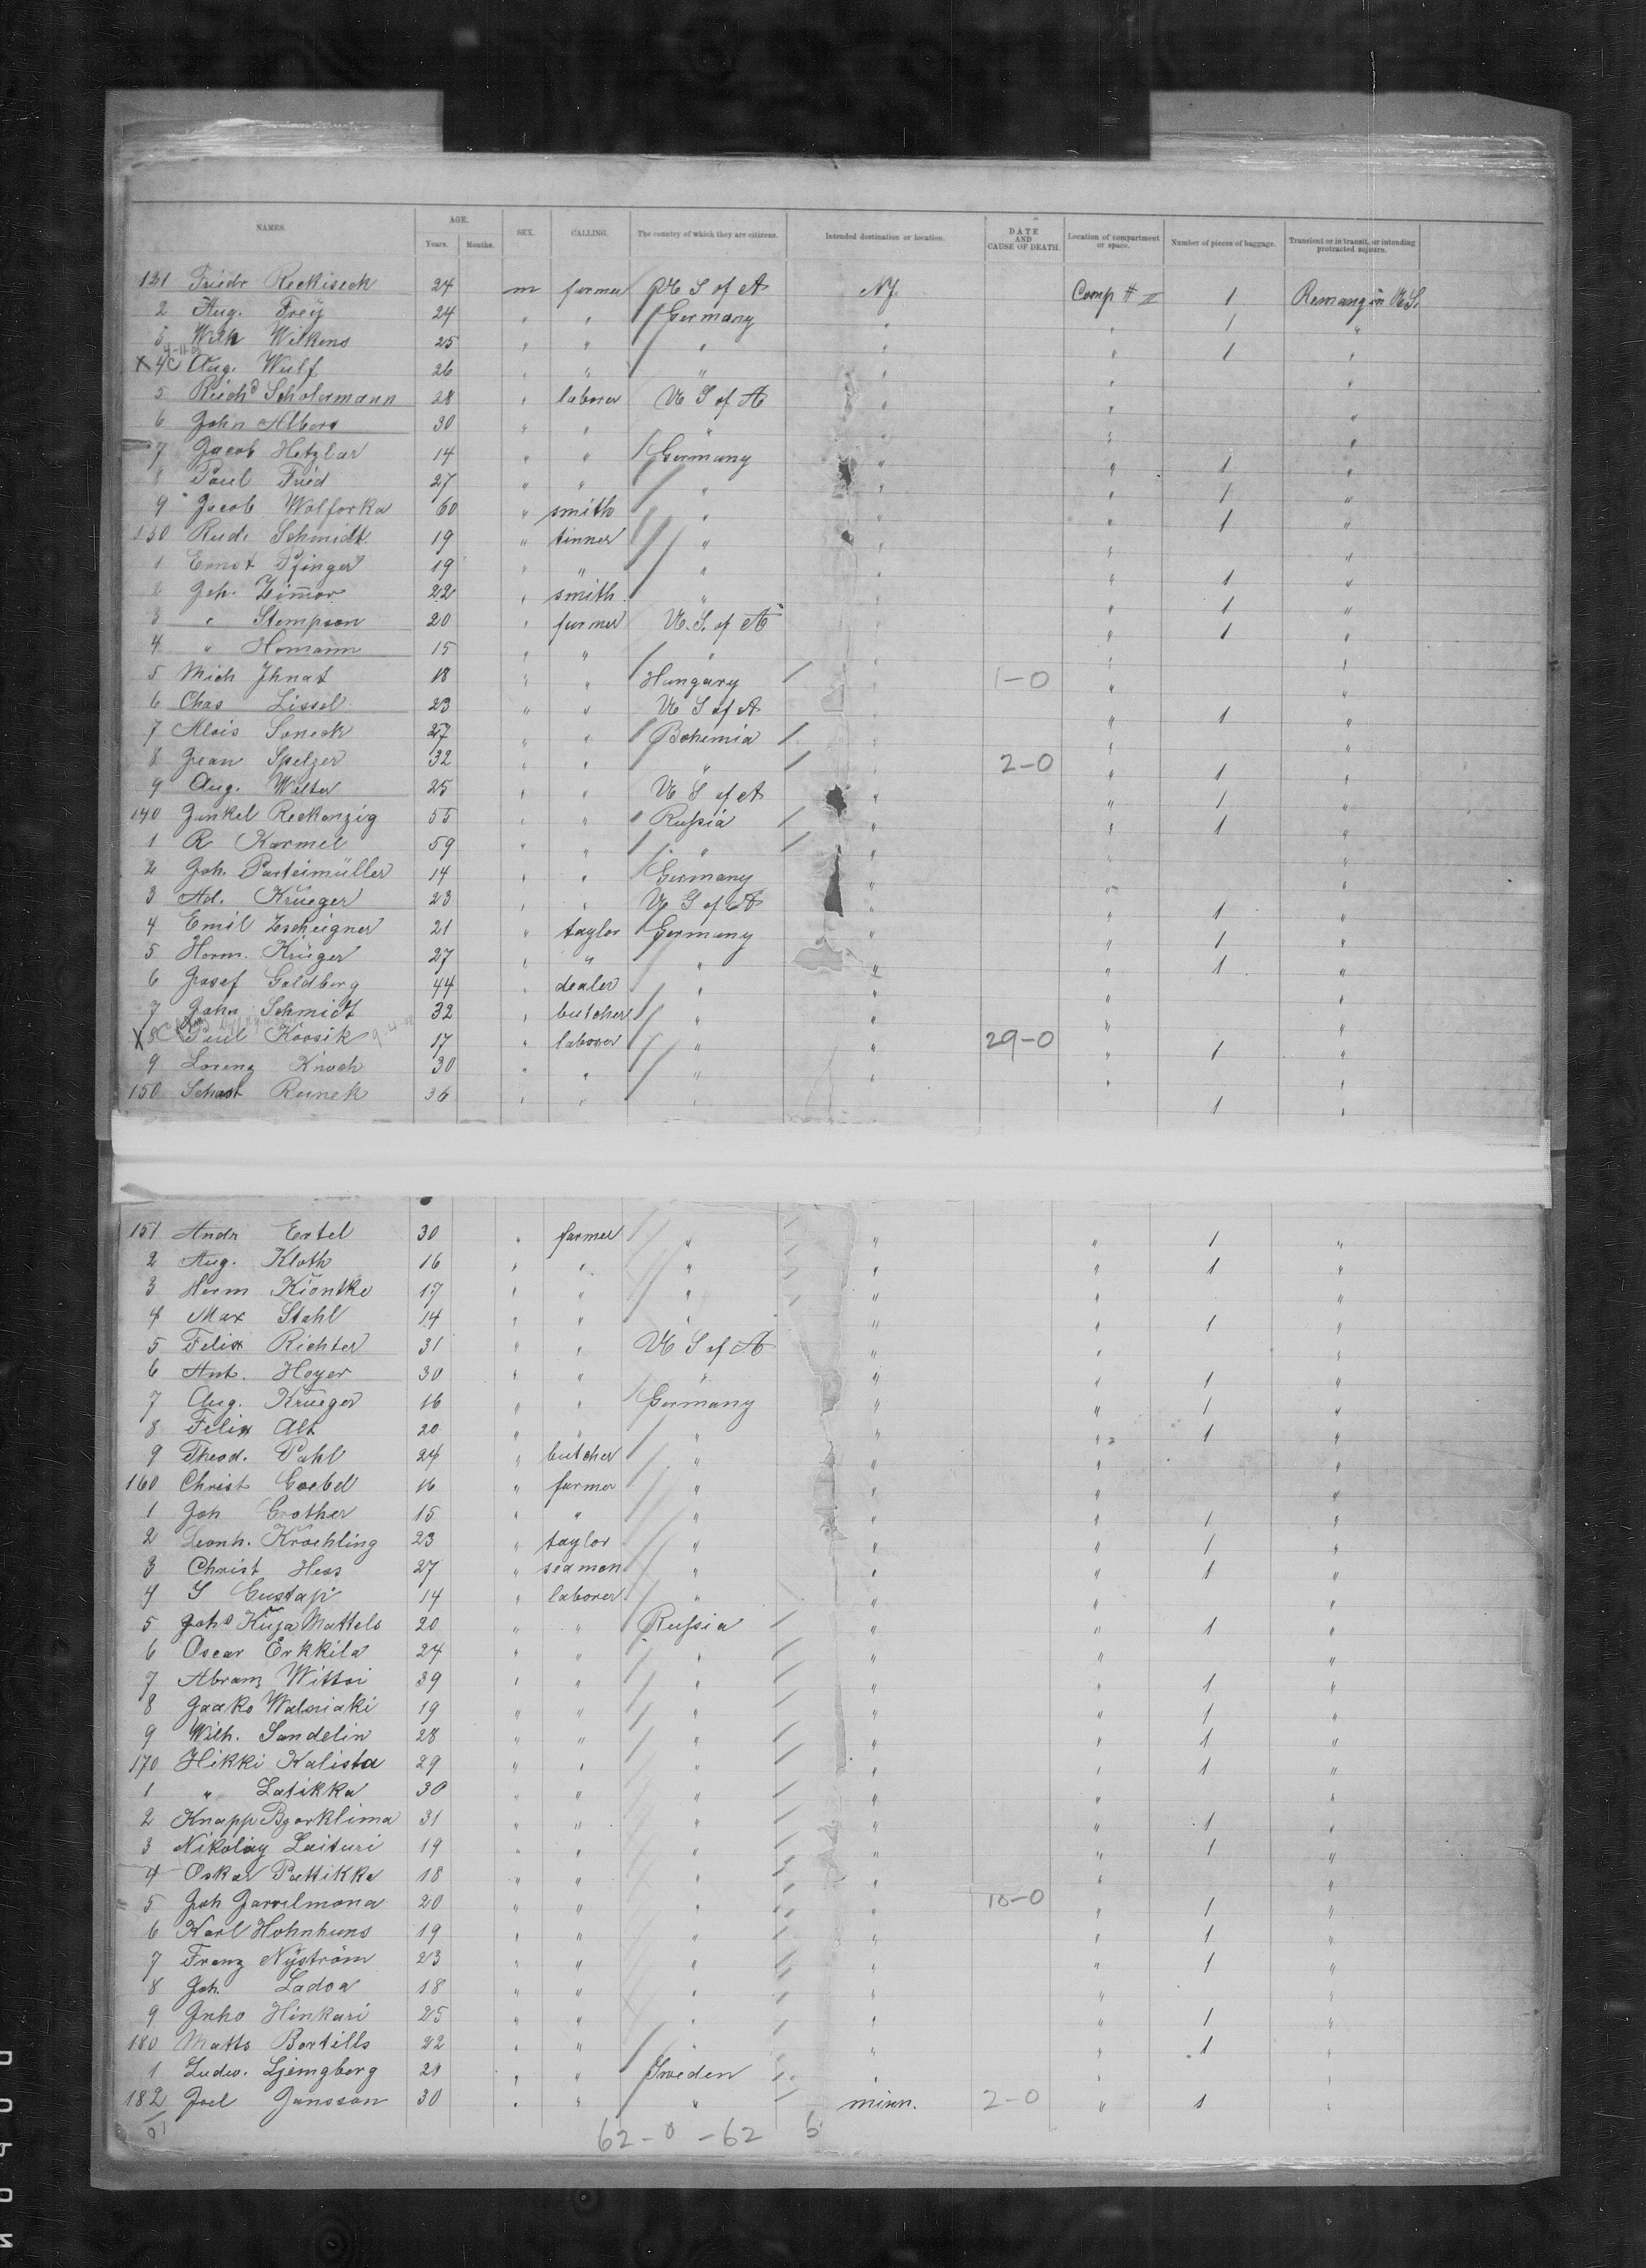 NAMES. AGE. Years. Months. SEX. CALLING. The country of which they are citizens. Intended destination or location. DATE AND CAUSE OF DEATH. Location of compartment or space. Number of pieces of baggage. Transient or in transit, or intending protracted sojourn.
131 Friedr Reckiseck 24 m farmer U S of A NY Comp # II 1 Remang in U.S.
2 Aug. Frey 24 " " Germany " " 1 "
3 Wilh Wilkens 25 " " " " " 1 "
X 4 C Aug. Wulf 26 " " " " " "
5 Reich<sup>d</sup> Scholermann 28 " laborer U S of A " " "
6 John Albers 30 " " " " " "
7 Jacob Hetzlar 14 " " Germany " " 1 "
8 Paul Fried 27 " " " " " 1 "
9 Jacob Wolforka 60 " smith " " " 1 "
130 Rud. Schmidt 19 " tinner " " " "
1 Ernst Pfinger 19 " " " " " 1 "
2 Joh. Zimmer 22 " smith " " 1 "
3 " Stempson 20 " farmer U. S. of A " 1 "
4 " Homann 15 " " " " " "
5 Mich Ihnat 18 " " Hungary " 1-0 " "
6 Chas Lissel 23 " " U S of A " 1 "
7 Alois Soneck 27 " " Bohemia " "
8 Jean Spelzer 32 " " " 2-0 " 1 "
9 Aug. Welter 25 " " U S of A " " 1 "
140 Junkel Reckanzig 55 " " Russia " " 1 "
1 R Karmel 59 " " " " " "
2 Joh. Parteimüller 14 " " Germany " " "
3 Ad. Krueger 23 " " U S of A " " 1 "
4 Emil Zscheigner 21 " taylor Germany " " 1 "
5 Herm. Krüger 27 " " " " " 1 "
6 Josef Goldberg 44 " dealer " " " "
7 John Schmidt 32 " butcher " " " "
X 8 C Paul Koosik 17 " laborer " " 29-0 " 1 "
9 Lorenz Knoch 30 " " " " " "
150 Schast Reinek 36 " " " 1 "
151 Andr Ertel 30 " farmer " " " 1 "
2 Aug. Kloth 16 " " " " " 1 "
3 Herm Kiontke 17 " " " " " "
4 Max Stahl 14 " " " " " 1 "
5 Felix Richter 31 " " U S of A " " "
6 Ant. Hoyer 30 " " " " " 1 "
7 Aug. Krueger 16 " " Germany " " 1 "
8 Felix Alt 20 " " " " " 1 "
9 Theod. Pahl 24 " butcher " " " "
160 Christ Goebel 16 " farmer " " " "
1 Joh Grother 15 " " " " " 1 "
2 Leonh. Kroehling 23 " taylor " " " 1 "
3 Christ Hess 27 " seaman " " " 1 "
4 S Gustap 14 " laborer " " " "
5 Joh<sup>s</sup> Kuja Mattels 20 " " Russia " " 1 "
6 Oscar Erkkila 24 " " " " " "
7 Abram Wittoi 39 " " " " " 1 "
8 Jaako Walmiaki 19 " " " " " 1 "
9 Wilh. Sandelin 28 " " " " " 1 "
170 Hikki Kalista 29 " " " " " 1 "
1 " Latikka 30 " " " " " "
2 Knapp Bjorklima 31 " " " " " 1 "
3 Nikolay Laituri 19 " " " " " 1 "
4 Oskar Pattikka 18 " " " " " "
5 Joh Jarvelmona 20 " " " " 10-0 " 1 "
6 Karl Hohnhuns 19 " " " " " 1 "
7 Franz Nyström 23 " " " " " 1 "
8 Joh. Ladoa 18 " " " " " "
9 Juho Hinkari 25 " " " " " 1 "
180 Matts Bertills 22 " " " " " 1 "
1 Ludw. Ljemgberg 21 " " Sweden " " "
182 Joel Jansson 30 " " " minn. 2-0 " 1 "
62-0-62